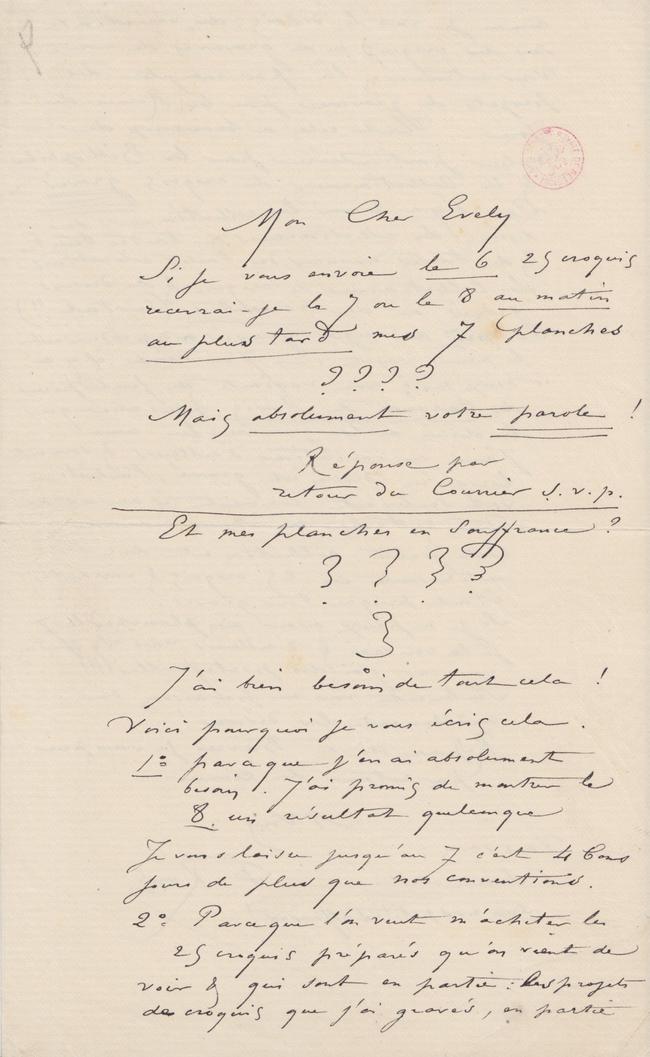 Mon Cher Evely
Si je vous envoie le 6 25 croquis
recevrai-je le 7 ou le 8 au matin
au plus tard mes 7 planches
? ? ? ?
Mais absolument votre parole !
Réponse par
retour du Courrier s.v.p.
Et mes planches en Souffrance ?
? ? ? ?
?
J'ai bien besoin de tout cela !
Voici pourquoi je vous écris cela.
1º parceque j'en ai absolument
besoin. J'ai promis de montrer le
8 un résultat quelconque
Je vous laisse jusqu'au 7 c'est 4 bons
jours de plus que nos conventions.
2º Parceque l'on veut m'acheter les
25 croquis préparés qu'on vient de
voir & qui sont en partie: les projets
de croquis que j'ai gravés, en partie